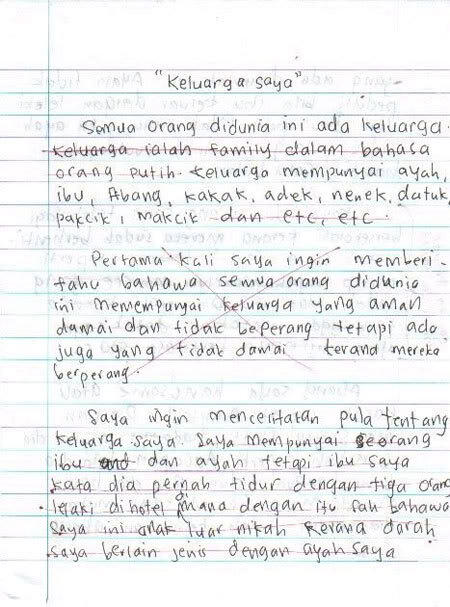 "Keluarga saya"
Semua orang didunia ini ada keluarga.
Keluarga ialah family dalam bahasa
orang putih. Keluarga mempunyai ayah,
ibu, Abang, kakak, adek, nenek, datuk,
pakcik, makcik dan etc, etc.
Pertama kali saya ingin memberi-
tahu bahawa semua orang didunia
ini memempunyai keluarga yang aman
damai dan tidak beperang tetapi ada
juga yang tidak damai kerana mereka
berperang.
Saya ingin menceritakan pula tentang
keluarga saya. Saya mempunyai seorang
ibu dan ayah tetapi ibu saya
kata dia pernah tidur dengan tiga orang
lelaki dihotel dimana dengan itu sah bahawa
saya ini anak luar nikah kerana darah
saya berlain jenis dengan ayah saya